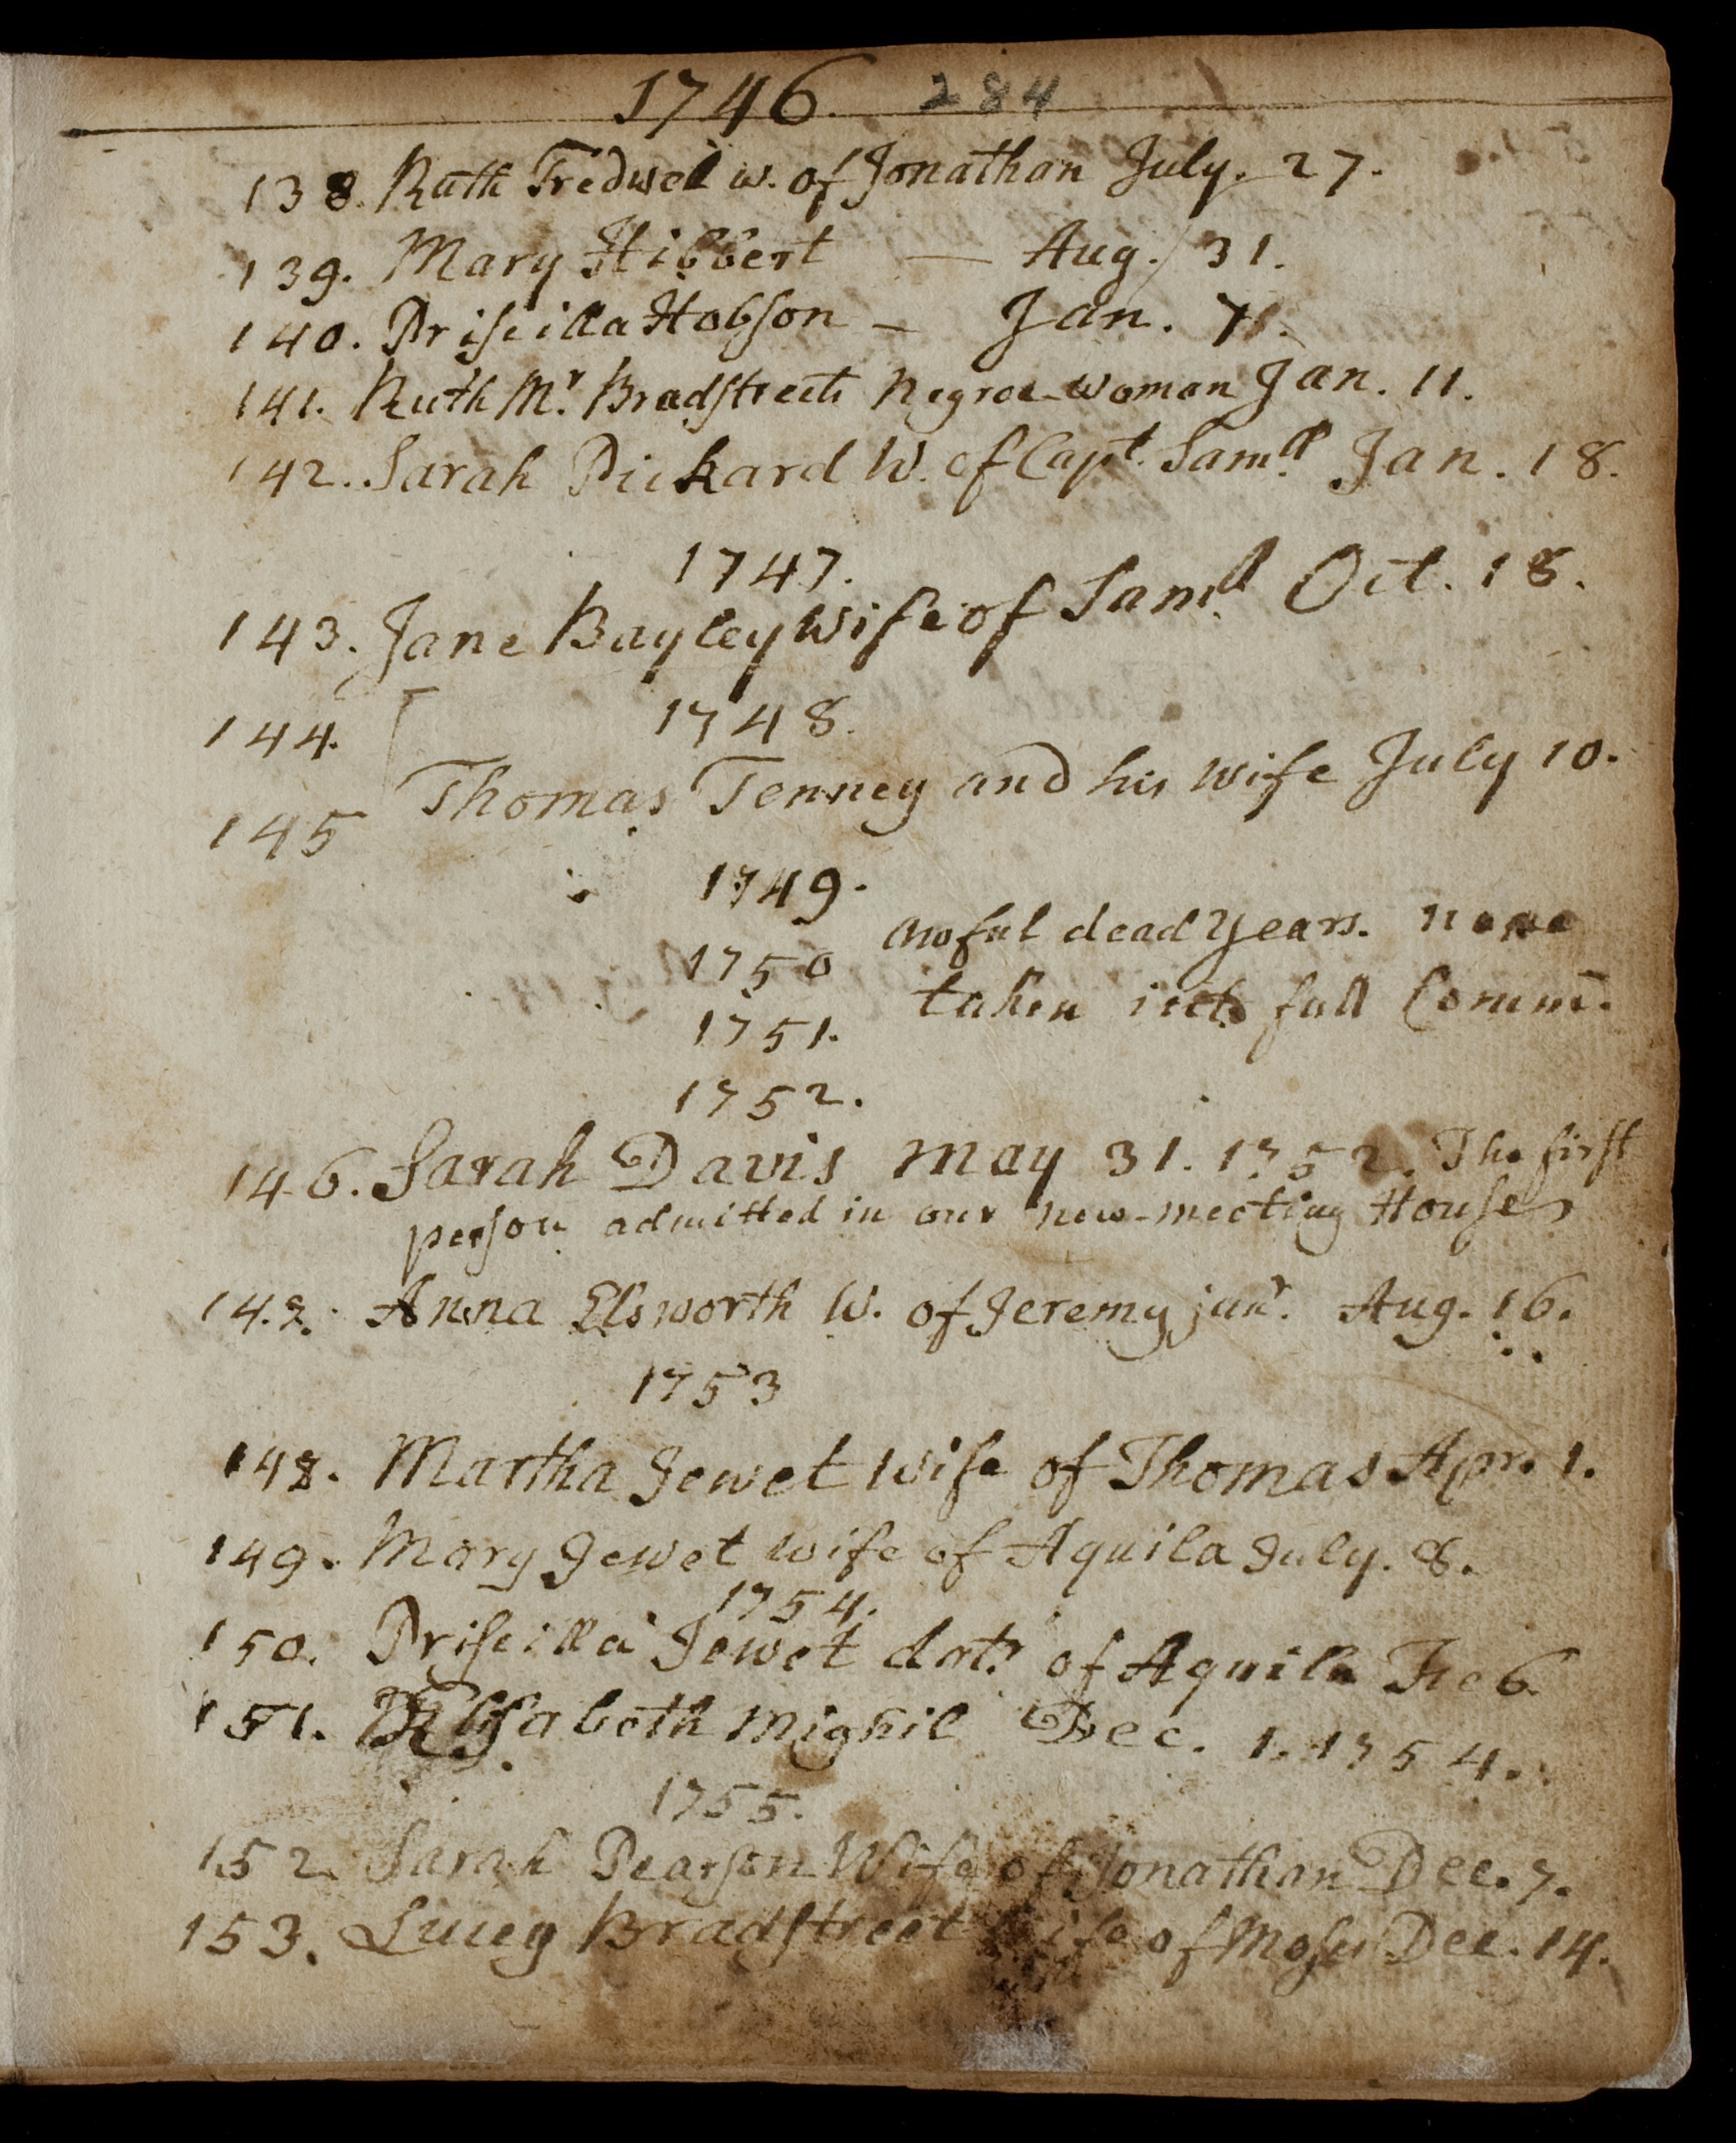 1746. 284
138. Ruth Tredwel w. of Jonathan July. 27.
139. Mary Hibbert — Aug. 31.
140. Priscilla Hobson — Jan.
141. Ruth Mr. Bradstreets Negroe-woman Jan. 11.
142. Sarah Pickard W. of Capt. Samll Jan. 18.
1747.
143. Jane Bayley wife of Samll Oct. 18.
1748.
144.
Thomas Tenney and his wife July 10.
145
1749.
1750 awful dead years. none
1751. taken into full Comm.
1752.
146. Sarah Davis May 31. 1752. The first
person admitted in our new-meeting House
147. Anna Elsworth W. of Jeremy junr. Aug. 16.
1753
148. Martha Jewet wife of Thomas Apr. 1.
149. Mary Jewet wife of Aquila July. 8.
1754.
150. Priscilla Jewet datr. of Aquila Feb
151. Elisabeth Mighil Dec. 1. 1754.
1755.
152. Sarah Pearson Wife of Jonathan Dec. 7.
153. Lucy Bradstreet wife of Moses Dec. 14.